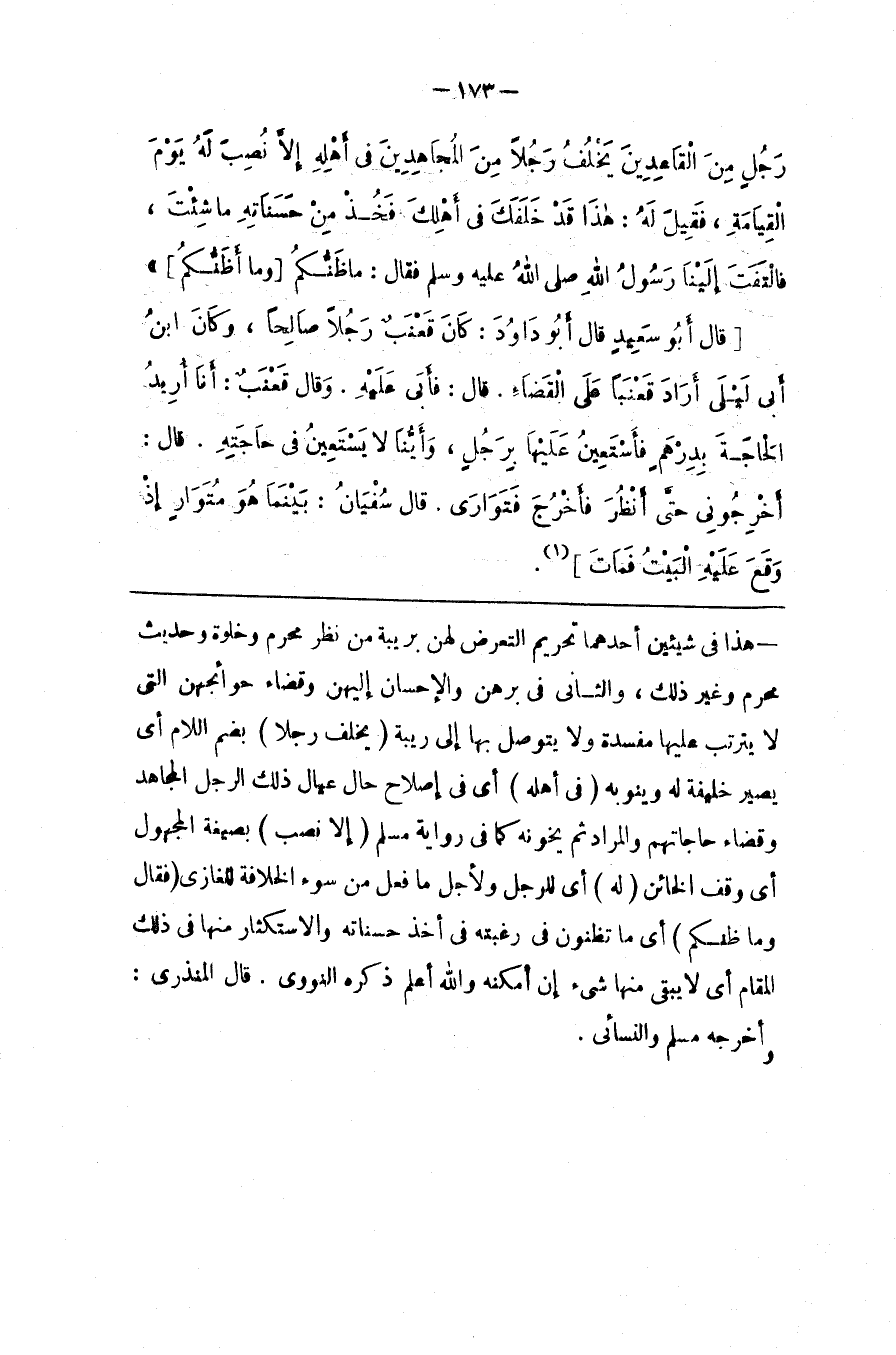 — ١٧٣ —
رَجُلٍ مِنَ الْقَاعِدِينَ يَخْلُفُ رَجُلاً مِنَ الْمُجَاهِدِينَ فى أَهْلِهِ إِلاَّ نُصِبَ لَهُ يَوْمَ
الْقِيَامَةِ ، فَقِيلَ لَهُ : هٰذَا قَدْ خَلَفَكَ فى أَهْلِكَ فَخُــذْ مِنْ حَسَنَاتِهِ ماشِئْتَ ،
فالْتَفَتَ إِلَيْنَا رَسُولُ اللهِ صلى اللهُ عليه وسلم فقال : ماظَنُّــكمُ [وما أَظَنُّــكمُ] »
[ قال أَبُو سعَيِيدٍ قال أَبُو دَاوُدَ : كَانَ قَعْنَبٌ رَجُلاً صَالِحاً ، وكَانَ ابنُ
أَبى لَيْـلَى أَرَادَ قَعْنَباً عَلَى الْقَضَاءِ . قال : فأَبَى عَلَيْهِ . وَقال قَعْنَبٌ : أَنَا أُرِيدُ
الْحَاجَــةَ بِدِرْهَمٍ فأَسْتَعِينُ عَلَيْهَا بِرَجُلٍ ، وَأَيُّنَا لا يَسْتَعِينُ فى حَاجَتِهِ . قال :
أَخْرِجُونِى حتَّى أَنْظُرَ فأُخْرُجَ فَتَوَارَى . قال سُفْيَانُ : بَيْنَمَا هُوَ مُتَوَارٍ إِذْ
وَقَعَ عَلَيْهِ الْبَيْتُ فَمَاتَ ](١) .
— هذا فى شيئين أحدهما تحريم التعرض لهن بريبة من نظر محرم وخلوة وحديث
محرم وغير ذلك ، والثــانى فى برهن والإحسان إليهن وقضاء حوائجهن التى
لا يترتب عليها مفسدة ولا يتوصل بها إلى ريبة ( يخلف رجلا ) بضم اللام أى
يصير خليفة له وينوبه ( فى أهله ) أى فى إصلاح حال عيال ذلك الرجل المجاهد
وقضاء حاجاتهم والمراد ثم يخونه كما فى رواية مسلم ( إلا نصب ) بصيغة المجهول
أى وقف الخائن ( له ) أى للرجل ولأجل ما فعل من سوء الخلافة للغازى (فقال
وما ظنــكم ) أى ما تظنون فى رغبته فى أخذ حسناته والاستكثار منها فى ذلك
المقام أى لا يبقى منها شىء إن أمكنه والله أعلم ذكره النووى . قال المنذرى :
وأخرجه مسلم والنسائى .